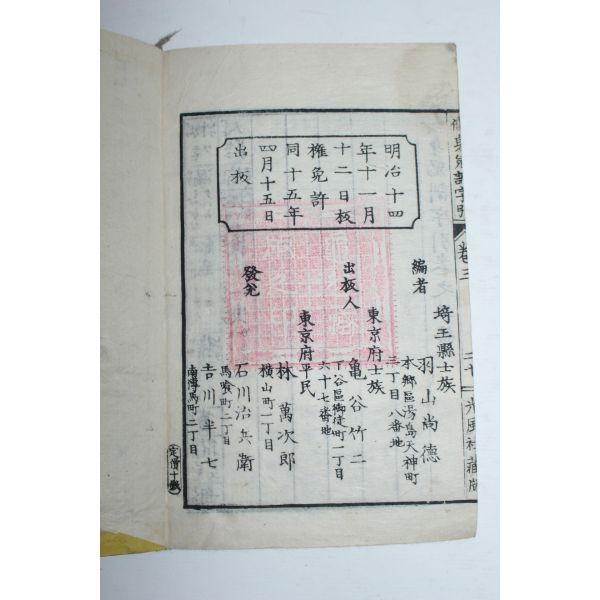 明治十四
年十一月
十二日板
權免許
同十五年
四月十五日
出板
編者
埼玉縣士族
羽山尚德
本郷區湯島天神町
三丁目八番地
出板人
東京府士族
亀谷竹二
下谷區御徒町一丁目
六十七番地
發兌
東京府平民
林萬次郎
横山町一丁目
石川治兵衛
馬喰町二丁目
吉川半七
南傳馬町二丁目
定價十錢
卷三
光風社藏版